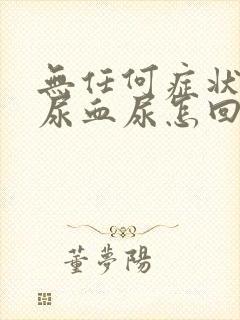 無任何症狀
尿血尿怎回
董夢陽